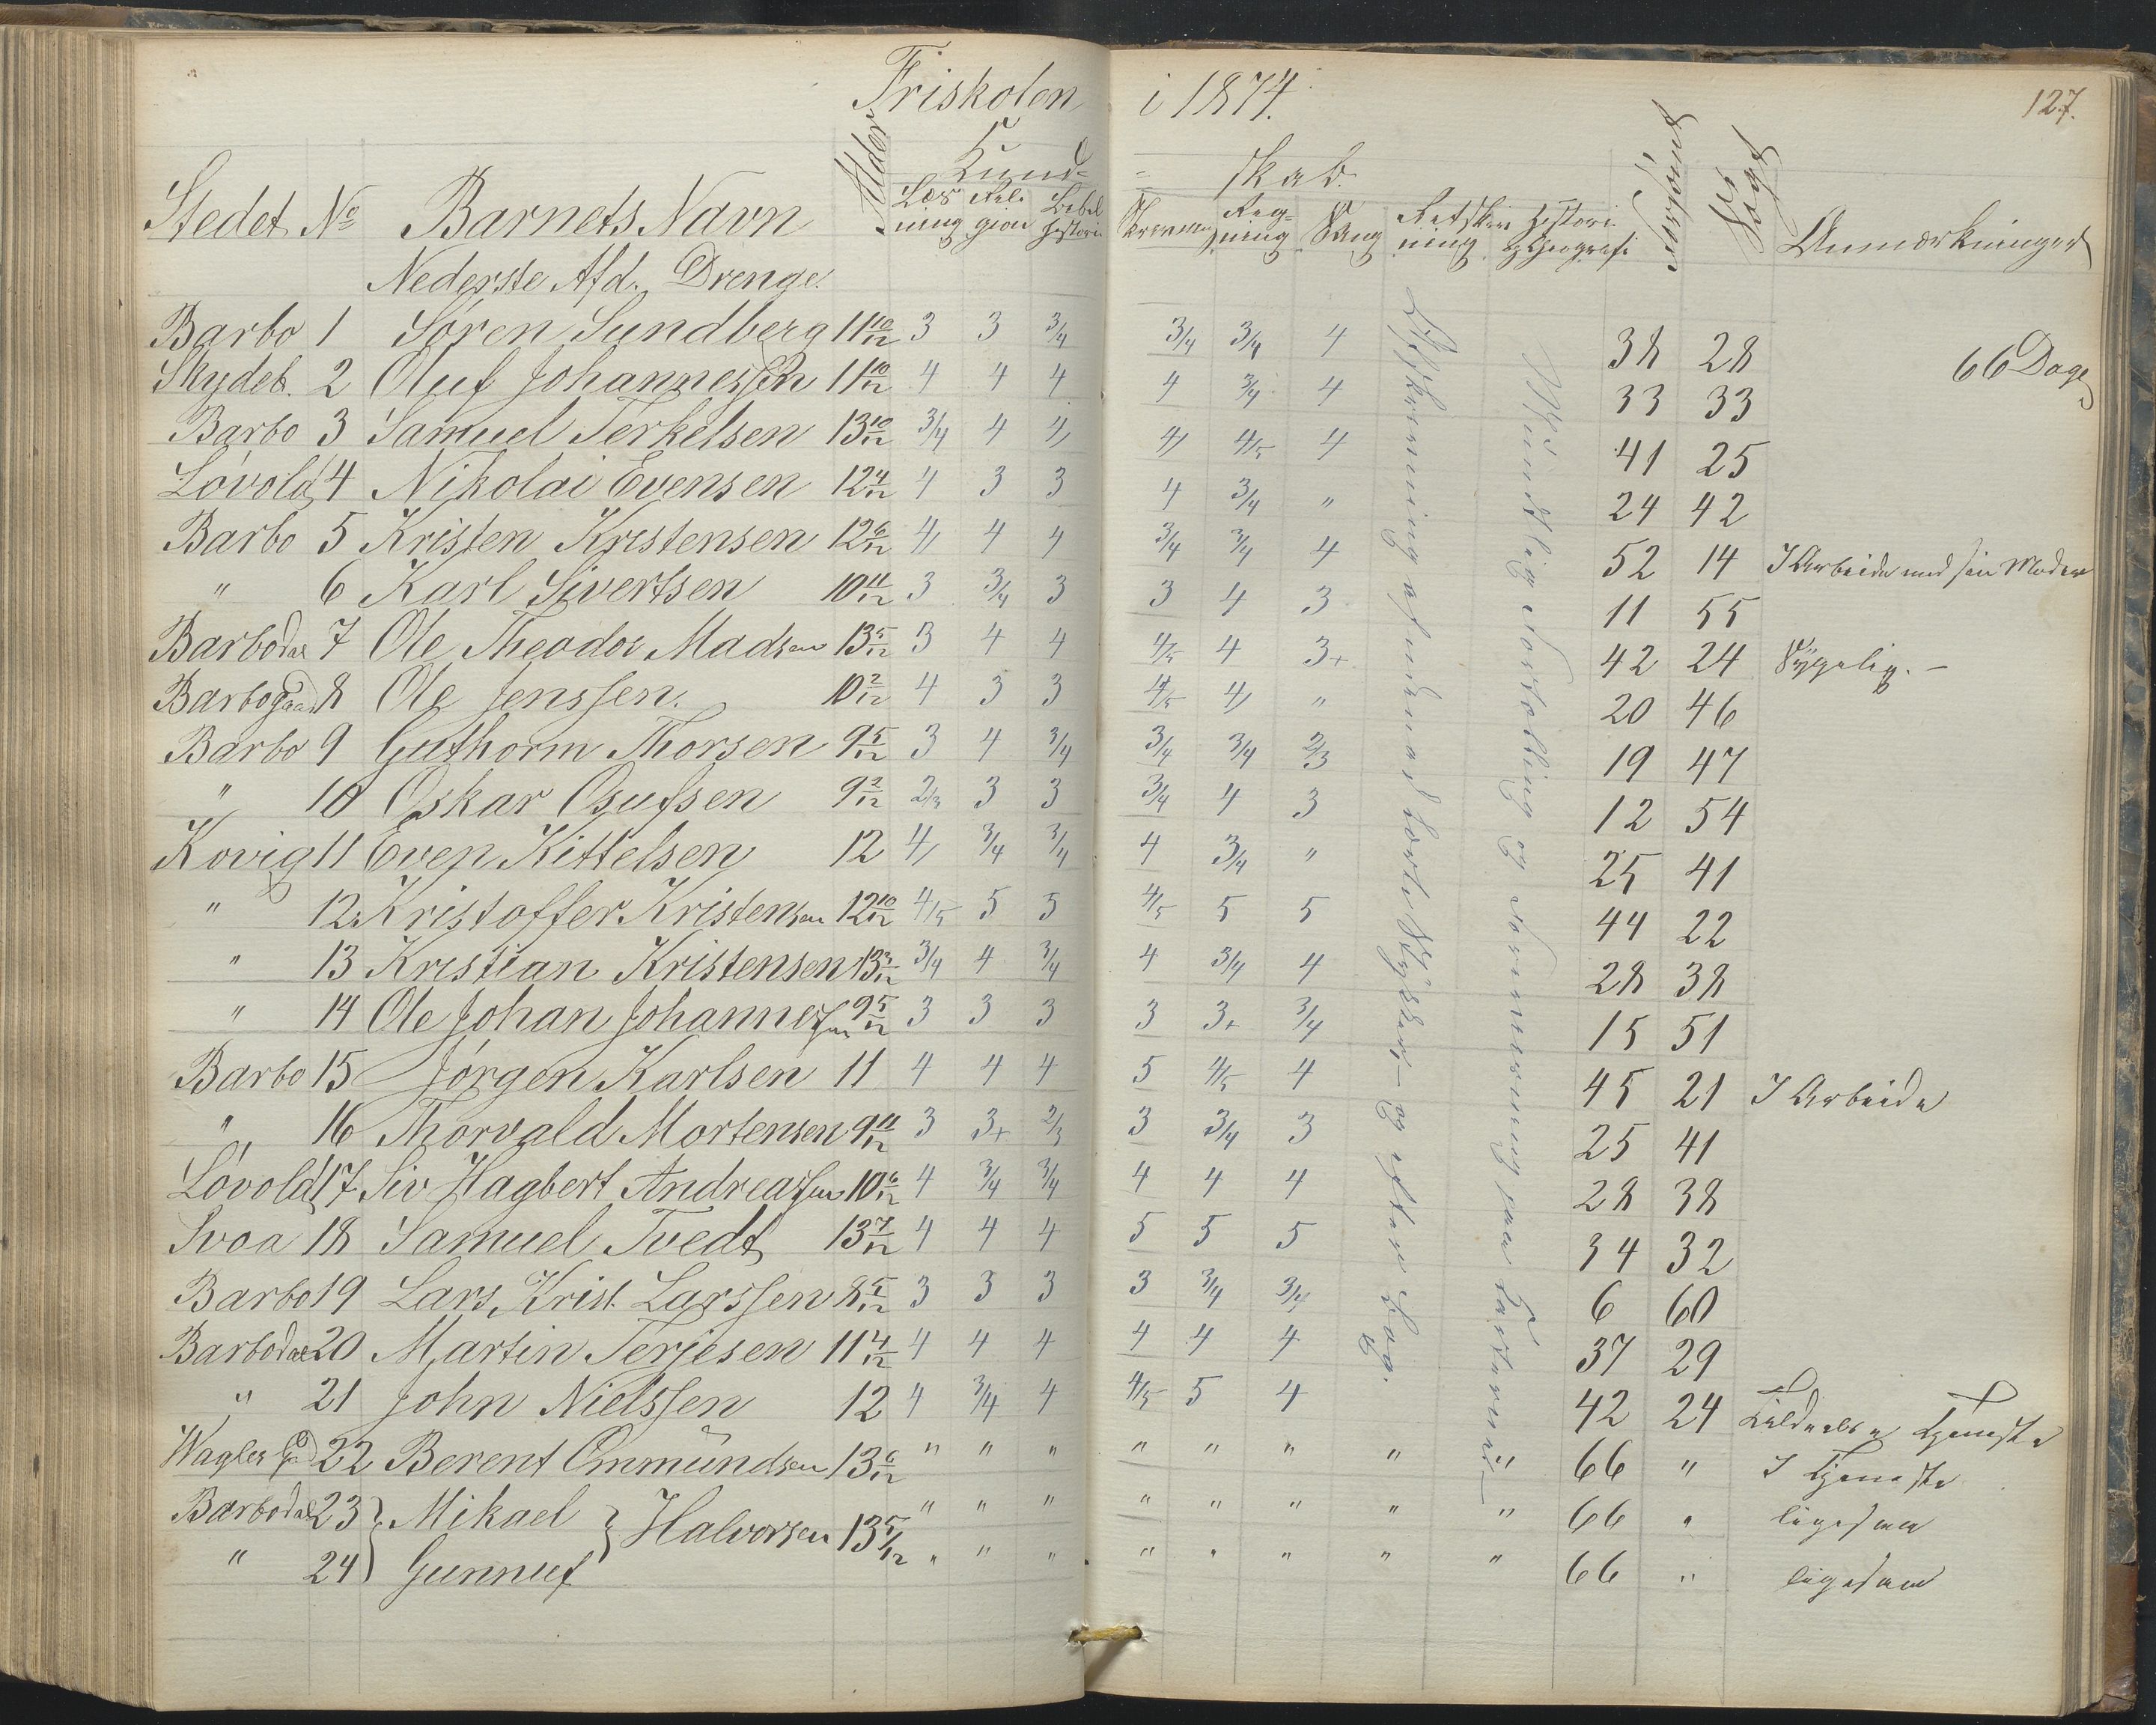 Friskolen i 1874. 127.
Kund- = skab.
Stedet No Barnets Navn Alder Læsning Religion Bibelhistorie Skrivning Regning Sang Retskrivning Historie og Geografi Forsømt Søgt Anmærkninger
Nederste Afd. Drenge.
Barbo 1 Søren Sundberg 11 10/12 3 3 3/4 3/4 3/4 4 38 28 66 Dage
Skydeb. 2 Oluf Johannessen 11 10/12 4 4 4 4 3/4 4 33 33
Barbo 3 Samuel Terkelsen 13 10/12 3/4 4 4 4 4/5 4 41 25
Lövold 4 Nikolai Evensen 12 4/12 4 3 3 4 3/4 " 24 42
Barbo 5 Kristen Kristensen 12 6/12 4 4 4 3/4 3/4 4 52 14 I Arbeide med sin Moder
" 6 Karl Sivertsen 10 11/12 3 3/4 3 3 4 3 11 55
Barbodal 7 Ole Theodor Madsen 13 5/12 3 4 4 4/5 4 3+ 42 24 Sygelig. -
Barbogaard 8 Ole Jenssen. 10 2/12 4 3 3 4/5 4 " 20 46
Barbo 9 Guthorm Thorsen 9 5/12 3 4 3/4 3/4 3/4 2/3 19 47
" 10 Oskar Osufsen 9 2/12 2/3 3 3 3/4 4 3 12 54
Kovig 11 Even Kittelsen 12 4 3/4 3/4 4 3/4 " 25 41
" 12 Kristoffer Kristensen 12 10/12 4/5 5 5 4/5 5 5 44 22
" 13 Kristian Kristensen 13 3/12 3/4 4 3/4 4 3/4 4 28 38
" 14 Ole Johan Johannessen 9 5/12 3 3 3 3 3+ 3/4 15 51
Barbo 15 Jörgen Karlsen 11 4 4 4 5 4/5 4 45 21 I Arbeide
" 16 Thorvald Mortensen 9 11/12 3 3+ 2/3 3 3/4 3 25 41
Lövold 17 Siv Hagbert Andreassen 10 6/12 4 3/4 3/4 4 4 4 28 38
Svoa 18 Samuel Tvedt 13 7/12 4 4 4 5 5 5 34 32
Barbo 19 Lars Krist. Larssen 8 5/12 3 3 3 3 3/4 3/4 6 60
Barbodal 20 Martin Terjesen 11 4/12 4 4 4 4 4 4 37 29
" 21 John Nielssen 12 4 3/4 4 4/5 5 4 42 24 Tjeneste
Wagles Gd 22 Berent Ommundsen 13 6/12 " " " " " " " " 66 " I Tjeneste
Barbodal 23 Mikael } Halvorsen 13 5/12 " " " " " " " " 66 " ligesaa
" 24 Gunnuf " " " " " " " " 66 " ligesaa
Afskrivning af udenad lærte Stykker, - og efter Bog.
Mundtlig Fortælling og Forevisning paa Karterne -